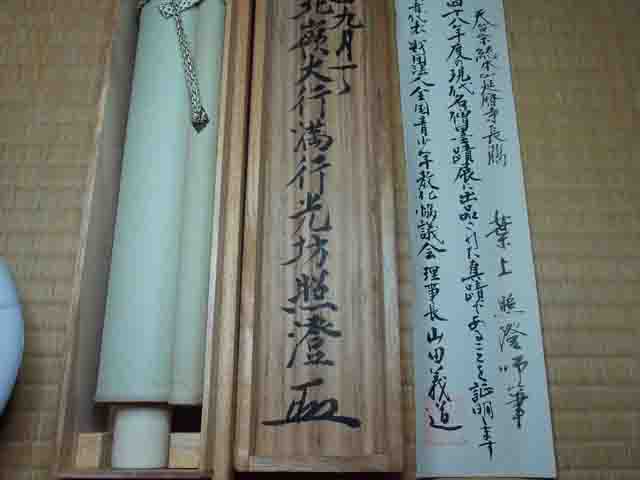 天台宗総本山延暦寺長臈
葉上照澄師筆
四十八年度の現代名僧墨蹟展に出品された真蹟であることを証明します
財団法人全国青少年教化協議会理事長山田義道
九月
北嶺大行満行光坊照澄